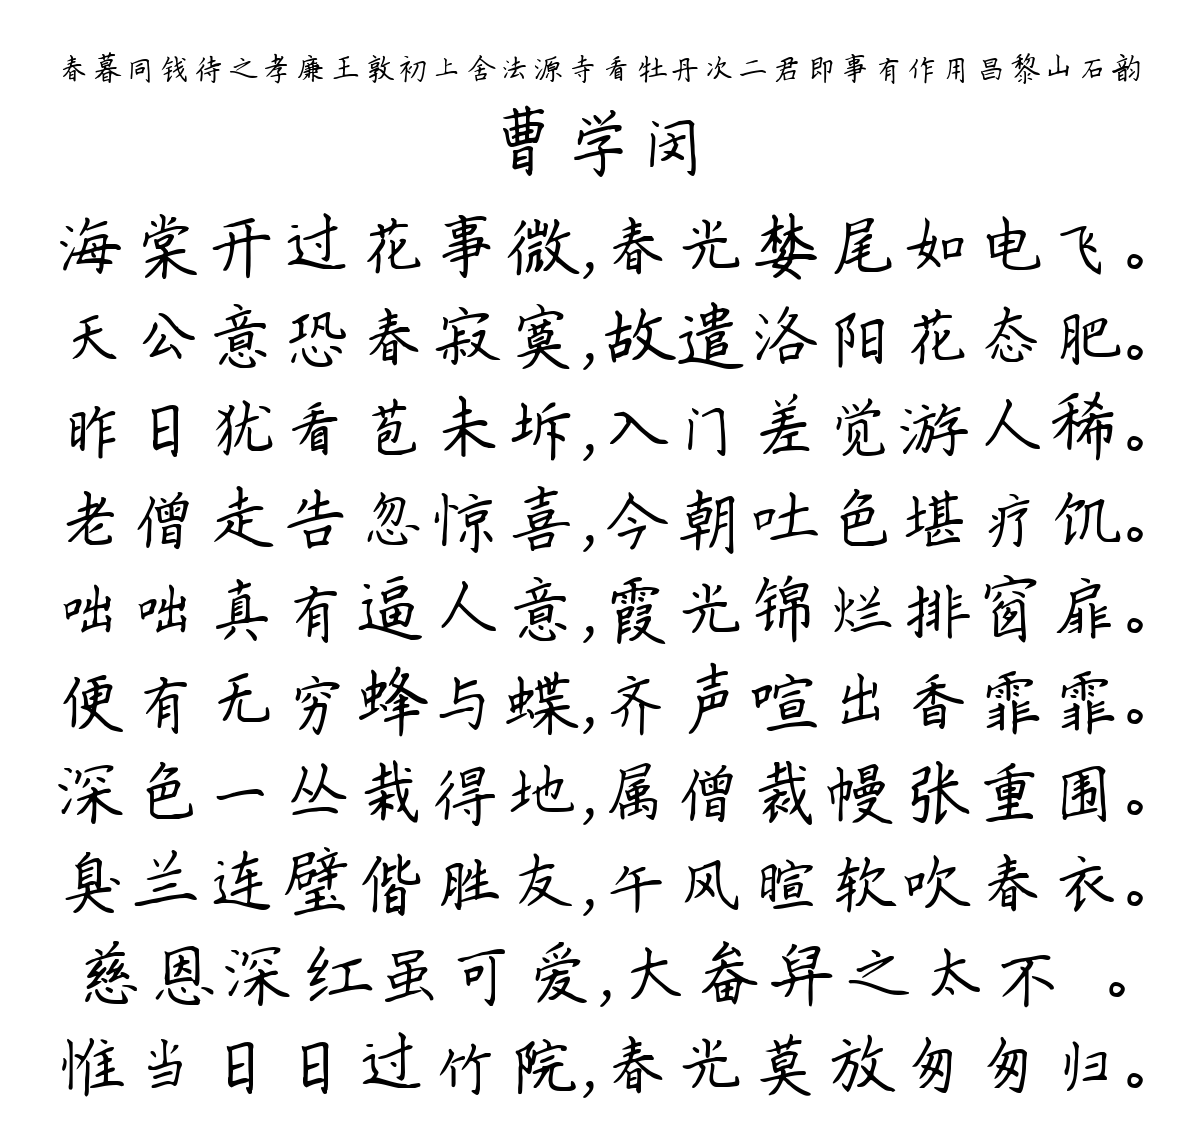 春暮同钱待之孝廉王敦初上舍法源寺看牡丹次二君即事有作用昌黎山石韵
曹学闵
海棠开过花事微,春光婪尾如电飞。
天公意恐春寂寞,故遣洛阳花态肥。
昨日犹看苞未坼,入门差觉游人稀。
老僧走告忽惊喜,今朝吐色堪疗饥。
咄咄真有逼人意,霞光锦烂排窗扉。
便有无穷蜂与蝶,齐声喧出香霏霏。
深色一丛栽得地,属僧裁幔张重围。
臭兰连璧偕胜友,午风暄软吹春衣。
慈恩深红虽可爱,大畚舁之太不 。
惟当日日过竹院,春光莫放匆匆归。